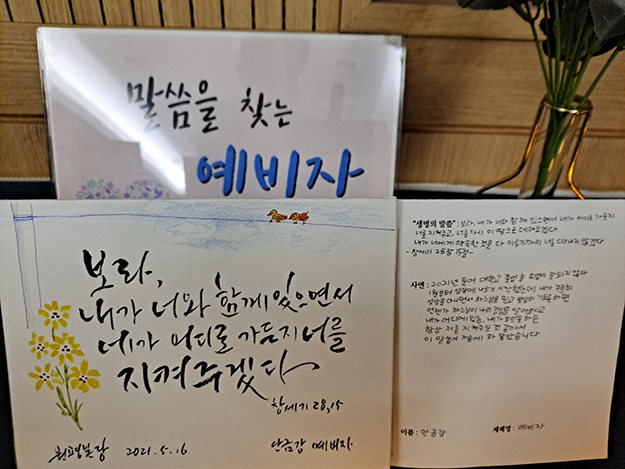 말씀을 찾는
예비자
보라,
내가 너와 함께 있으면서
네가 어디로 가든지 너를
지켜주겠다
창세기 28,15
2021.5.16
안금강 예비자
"생명의 말씀" : 보라, 내가 너와 함께 있으면서 네가 어디로 가든지
너를 지켜주고, 너를 다시 이 땅으로 데려오겠다.
내가 너에게 약속한 것을 다 이루기까지 너를 떠나지 않겠다.
- 창세기 28장 15절 -
사연 : 2021년 들어 대학교 졸업 후 취업이 잘되지 않아
성당에 나오기 시작했는데, 내가 꾸준히
성당을 다니면서 하느님을 믿고 열심히 기도를 하면
언젠가 하느님이
내가 어디에 있든, 내가 무엇을 하든
항상 저를 지켜주실 것 같아서
이 말씀에 와 닿았습니다.
이름 : 안금강
세례명 : 예비자